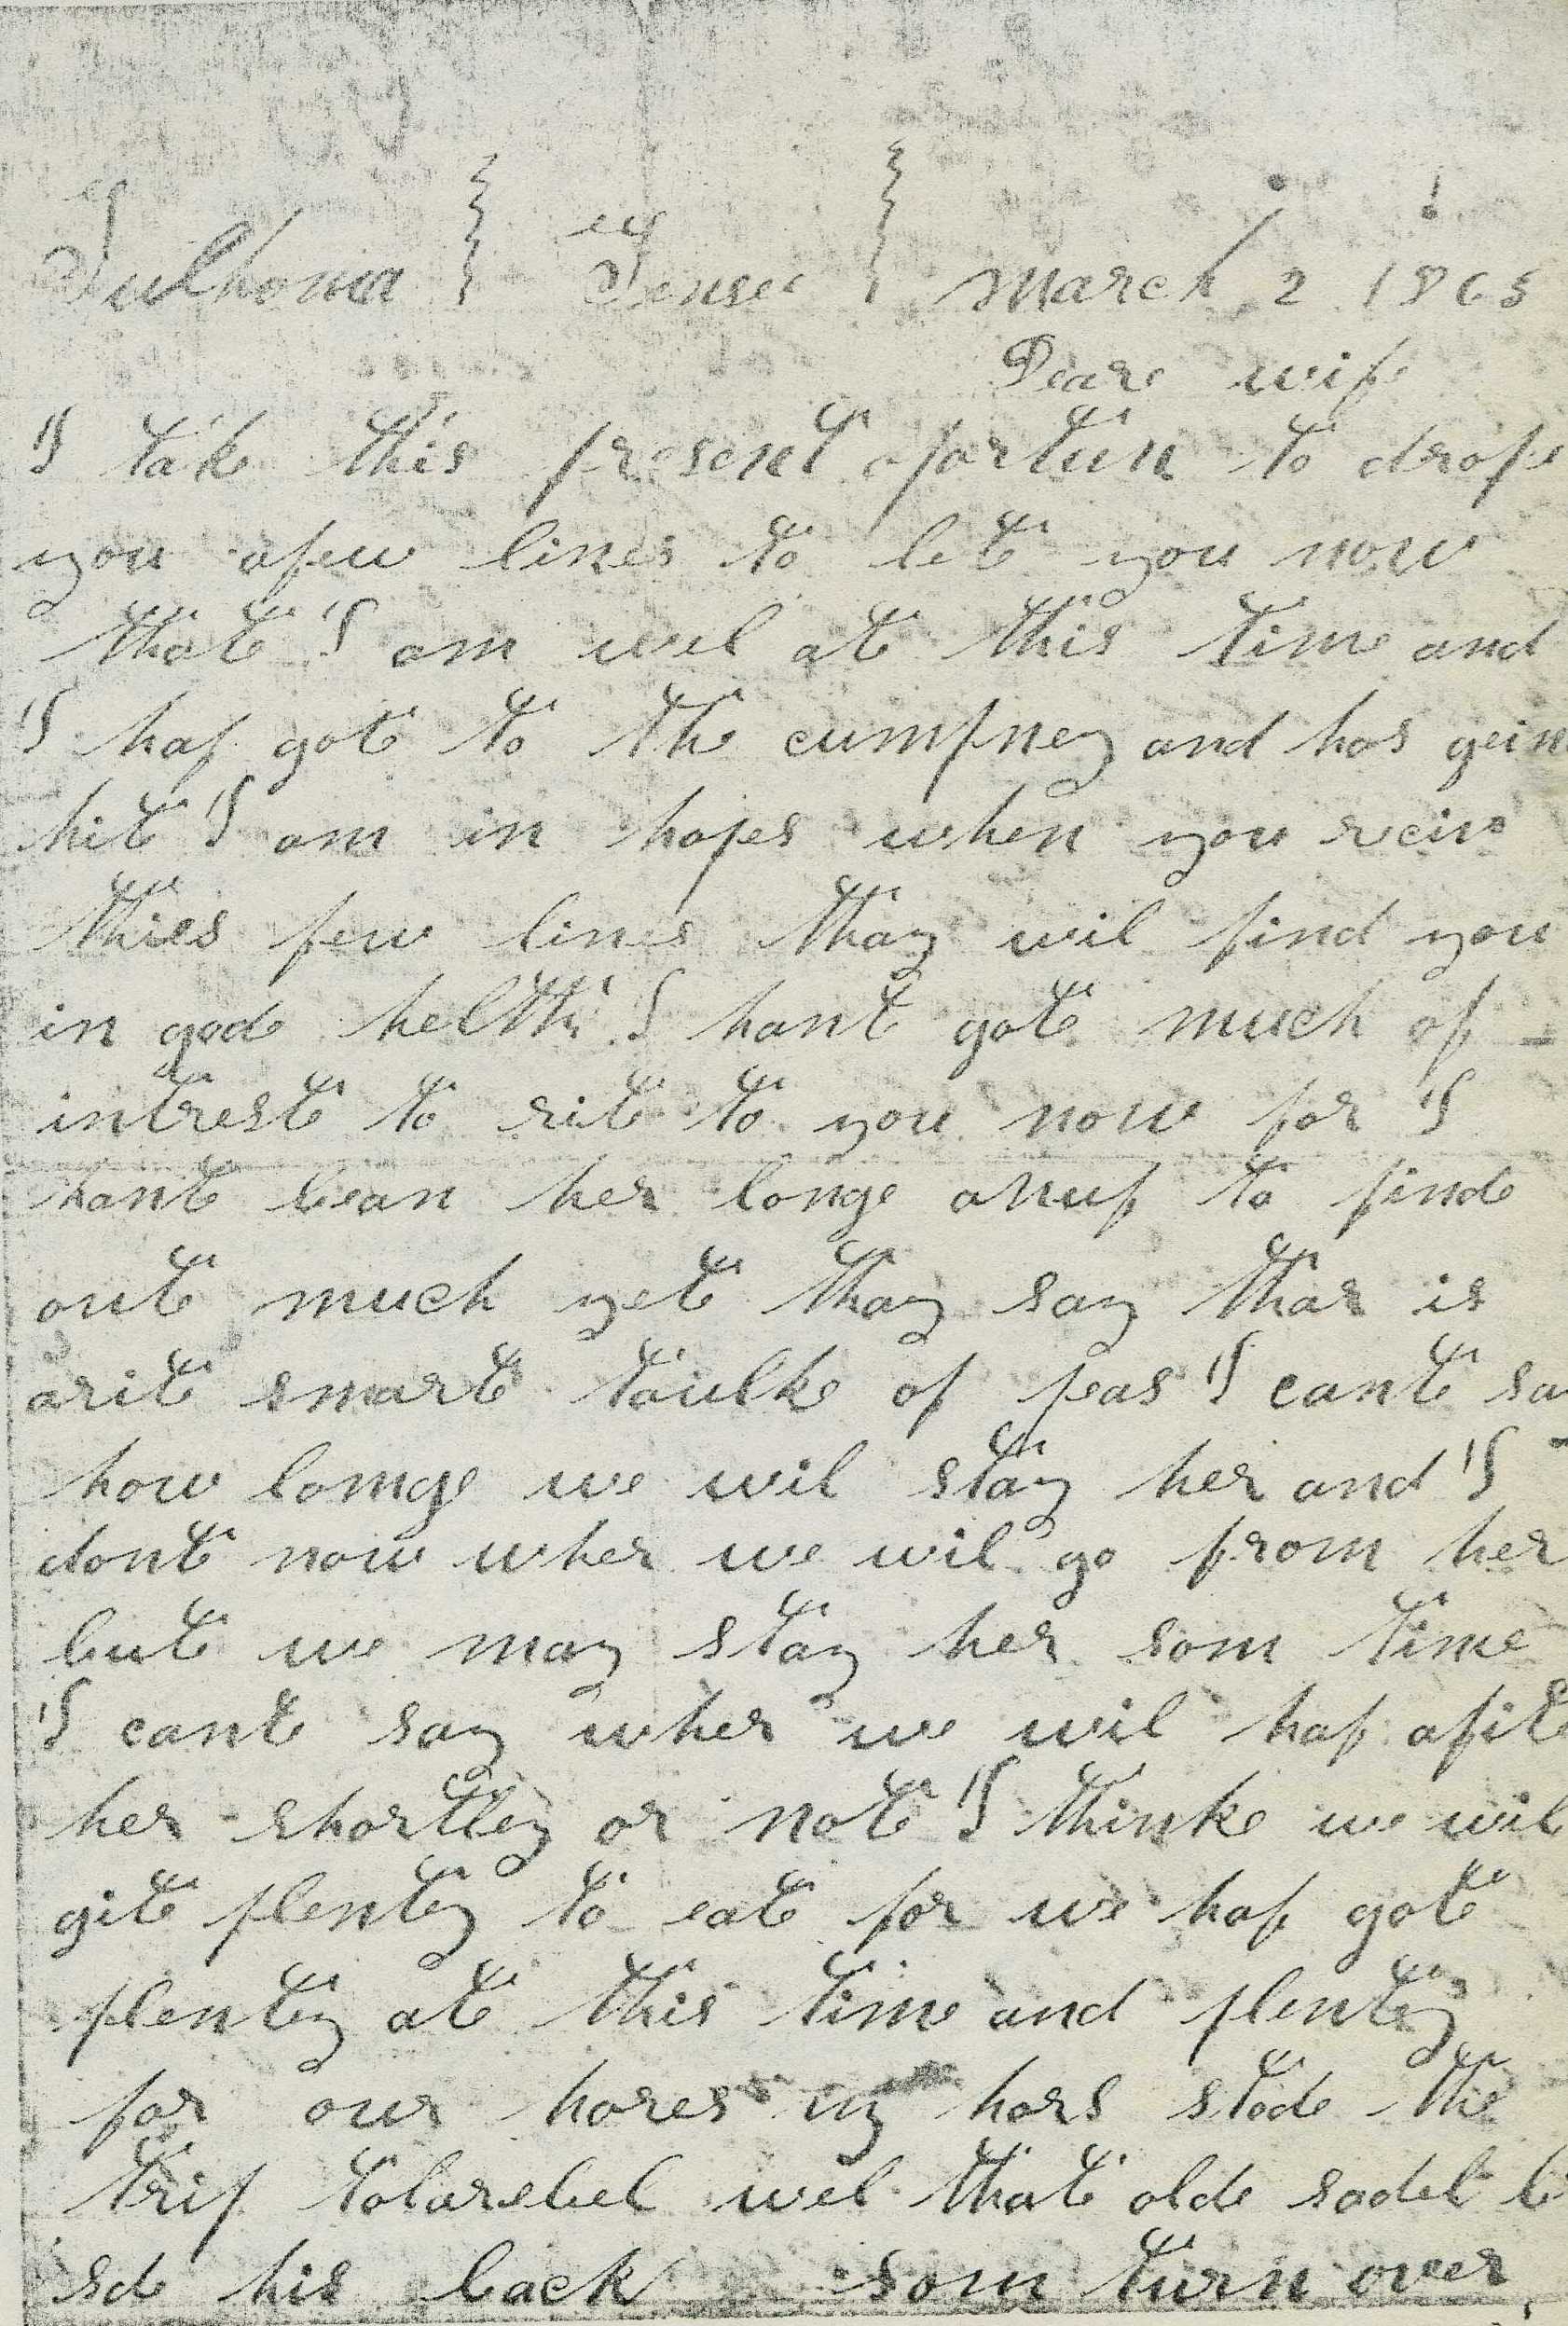 Tulhoma } Tensee } March 2 1863
Deare wife
I take this present oportun to drope
you afew lines to let you now
that I am wel at this time and
I haf got to the cumpney and has gein
hit I am in hopes when you reciv
thies few lines thay wil find you
in gode helth I hant got much of
intrest to rite to you now for I
hant bean her longe anuf to finde
out much yet thay say thar is
arite smart taulke of peas I cant sa
how lomge we wil stay her and I
dont now wher we wil go from her
but we may stay her som time
I cant say wher we wil haf afite
her shortley or not I thinke we wil
gite plenty to eat for we haf got
plenty at this time and plenty
for our hores my hors stode the
trip tolarebel wel that olde sadel b
sde his back som turn over